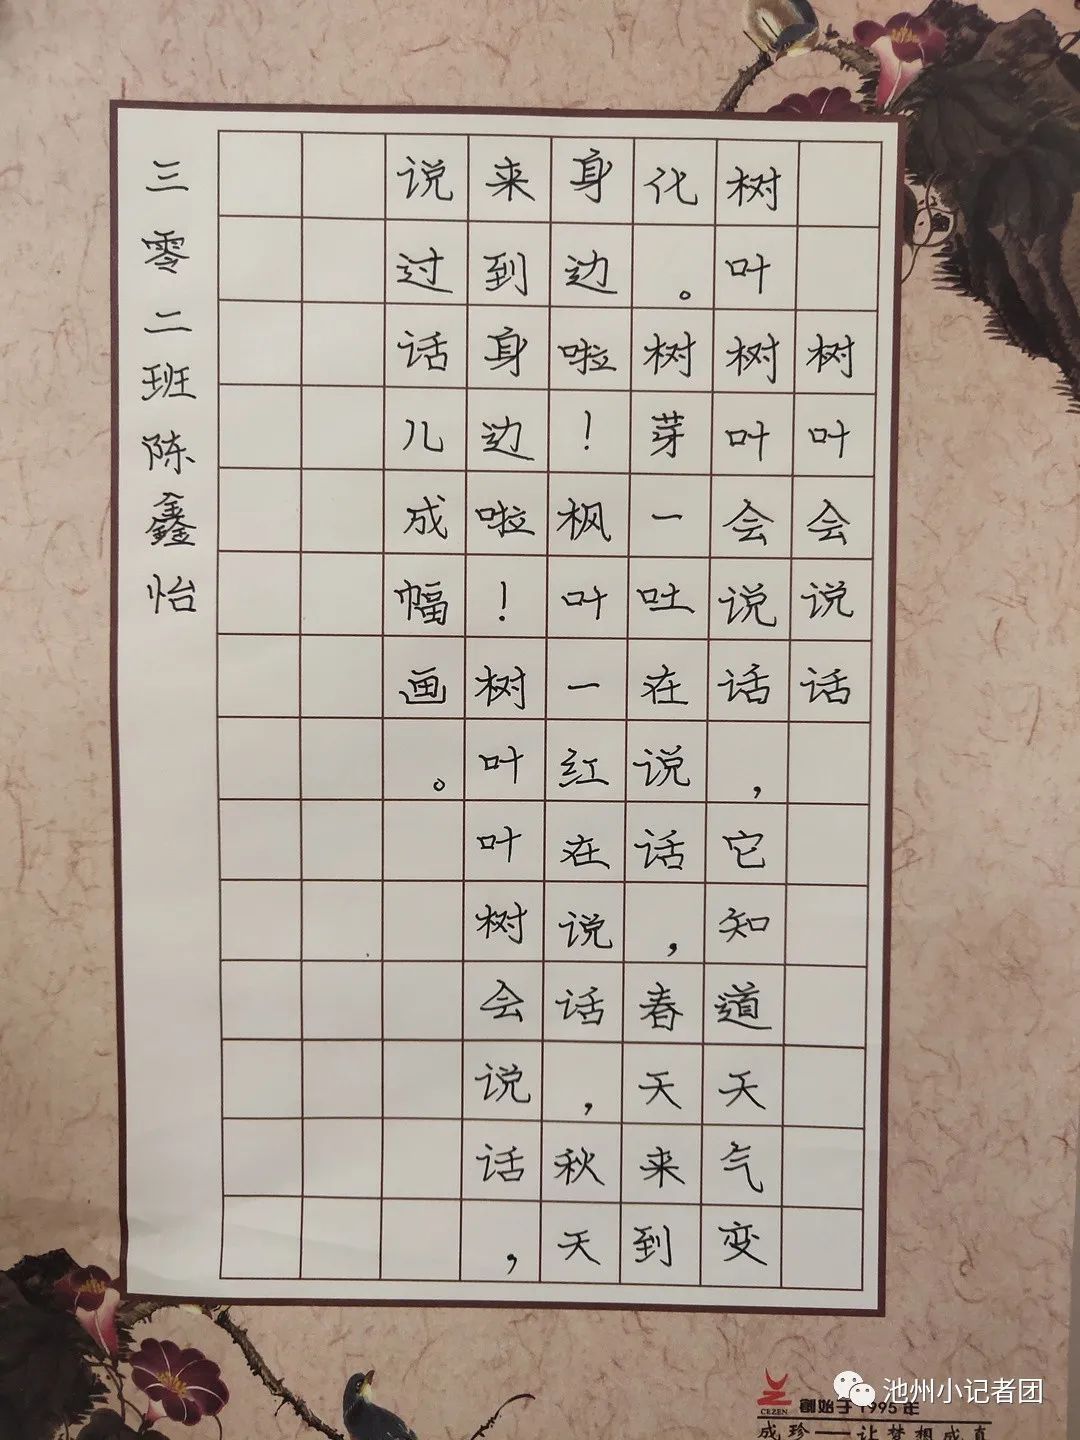 树叶会说话
树叶树叶会说话，它知道天气变
化。树芽一吐在说话，春天来到
身边啦！枫叶一红在说话，秋天
来到身边啦！树叶叶树会说话，
说过话儿成幅画。
三零二班陈鑫怡
池州小记者团
CEZEN
創始于1995年
成珍——让梦想成真